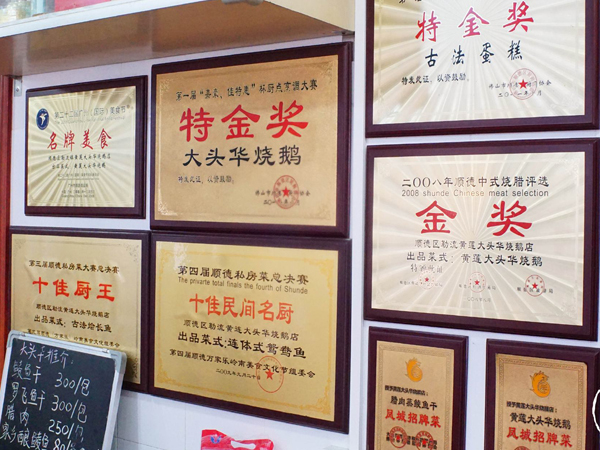 名牌美食
第一届“嘉豪、佳特惠”杯厨点烹调大赛
特金奖
大头华烧鹅
特发此证，以资鼓励。
特金奖
古法蛋糕
特发此证，以资鼓励。
二〇〇八年顺德中式烧腊评选
2008 shunde Chinese meat selection
金奖
顺德区勒流黄莲大头华烧鹅店
出品菜式：黄莲大头华烧鹅
特此批准
第三届顺德私房菜大赛总决赛
十佳厨王
顺德区勒流黄莲大头华烧鹅店
出品菜式：古法焓长鱼
第四届顺德私房菜总决赛
The privarte total finals the fourth of Shunde
十佳民间名厨
顺德区勒流黄莲大头华烧鹅店
出品菜式：连体式鸳鸯鱼
第四届顺德万家乐岭南美食文化节组委会
二〇〇九年九月二十日
大头华推介：
鱼干 300/包
罗飞鱼干 300/包
腊肉 250/
80/
授予黄莲大头华烧鹅店：
腊肉蒸鲮鱼干
凤城招牌菜
授予黄莲大头华烧鹅店：
黄莲大头华烧鹅
凤城招牌菜